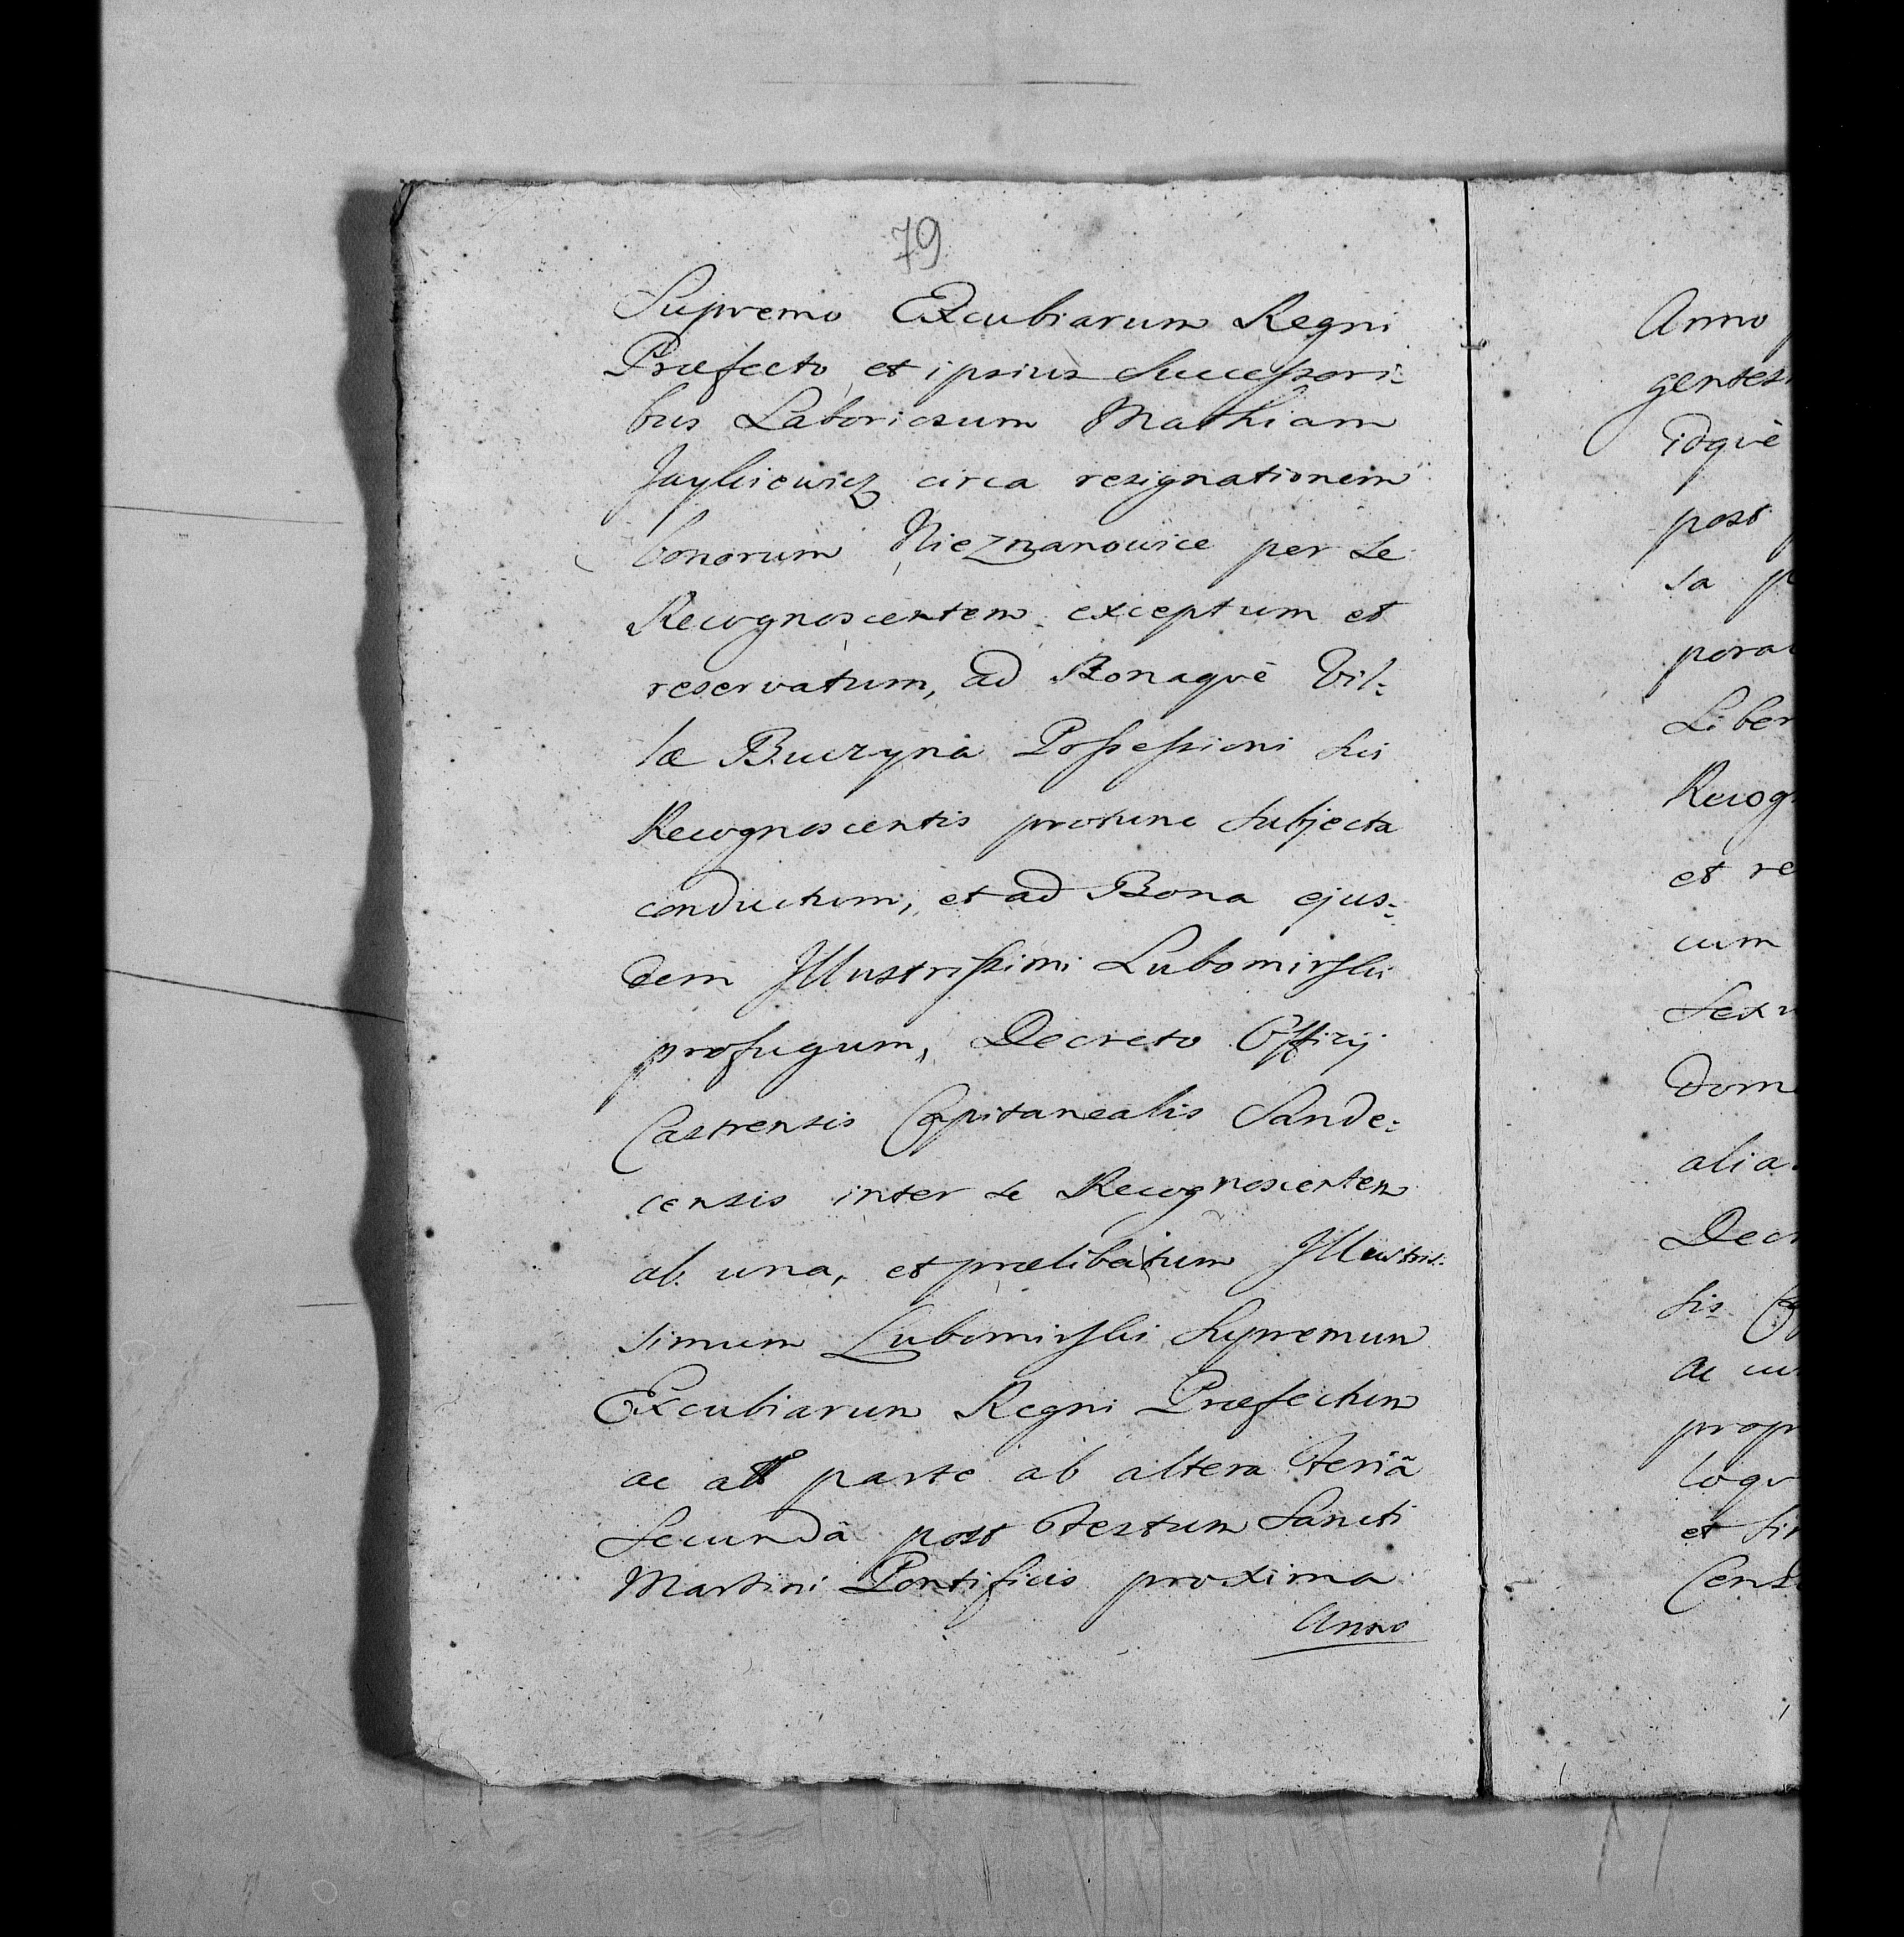 79
Supremo Excubiarum Regni
Præfecto et ipsius Successori=
bus Laboriosum Mathiam
Jaykiewicz circa resignationem
bonorum Nieznanowice per se
Recognoscentem exceptum et
reservatum, ad Bonaqvè Vil=
læ Buczyna Possessioni sui
Recognoscentis protunc subjecta
conductum, et ad Bona ejus=
dem Illustrissimi Lubomirski
profugum, Decreto Officij
Castrensis Capitanealis Sande=
censis inter se Recognoscentem
ab una, et prælibatum Illustris=
simum Lubomirski Supremum
Excubiarum Regni Præfectum
ac parte ab altera Feriâ
Secundâ post Festum Sancti
Martini Pontificis proxima
Anno
Anno
gentes
idqvè
post
sa
pora
Liber
Recog
et re
cum
Sex
Dom
alia
Decr
sis
ac
prop
loqv
et
Cens